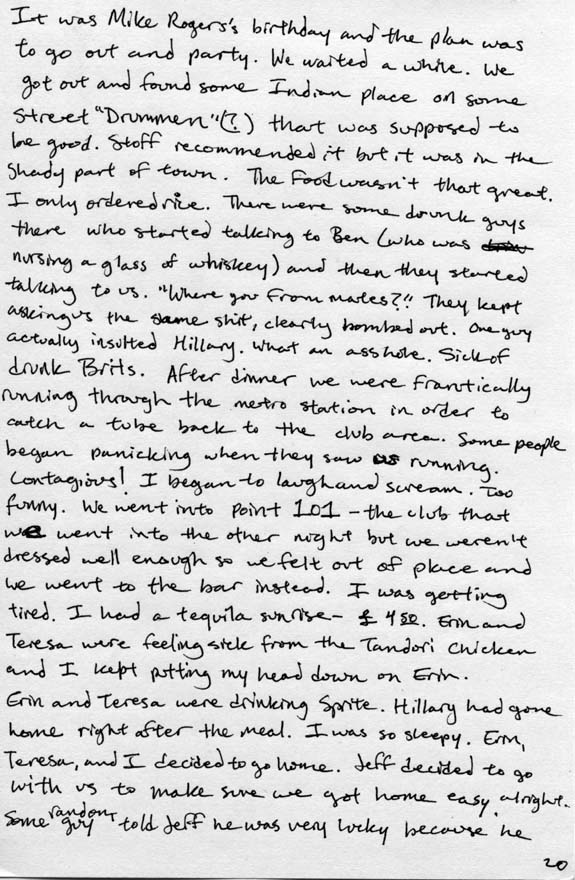 It was Mike Rogers's birthday and the plan was
to go out and party. We waited a while. We
got out and found some Indian place on some
street "Drummen"(?) that was supposed to
be good. Stoff recommended it but it was in the
shady part of town. The food wasn't that great.
I only ordered rice. There were some drunk guys
there who started talking to Ben (who was
nursing a glass of whiskey) and then they started
talking to us. "Where you from mates?!" They kept
asking us the same shit, clearly bombed out. One guy
actually insulted Hillary. What an asshole. Sick of
drunk Brits. After dinner we were frantically
running through the metro station in order to
catch a tube back to the club area. Some people
began panicking when they saw us running.
Contagious! I began to laugh and scream. Too
funny. We went into Point 101 - the club that
we went into the other night but we weren't
dressed well enough so we felt out of place and
we went to the bar instead. I was getting
tired. I had a tequila sunrise - £ 4 50. Erin and
Teresa were feeling sick from the Tandori Chicken
and I kept putting my head down on Erin.
Erin and Teresa were drinking Sprite. Hillary had gone
home right after the meal. I was so sleepy. Erin,
Teresa, and I decided to go home. Jeff decided to go
with us to make sure we got home easy alright.
Some random guy told Jeff he was very lucky because he
20